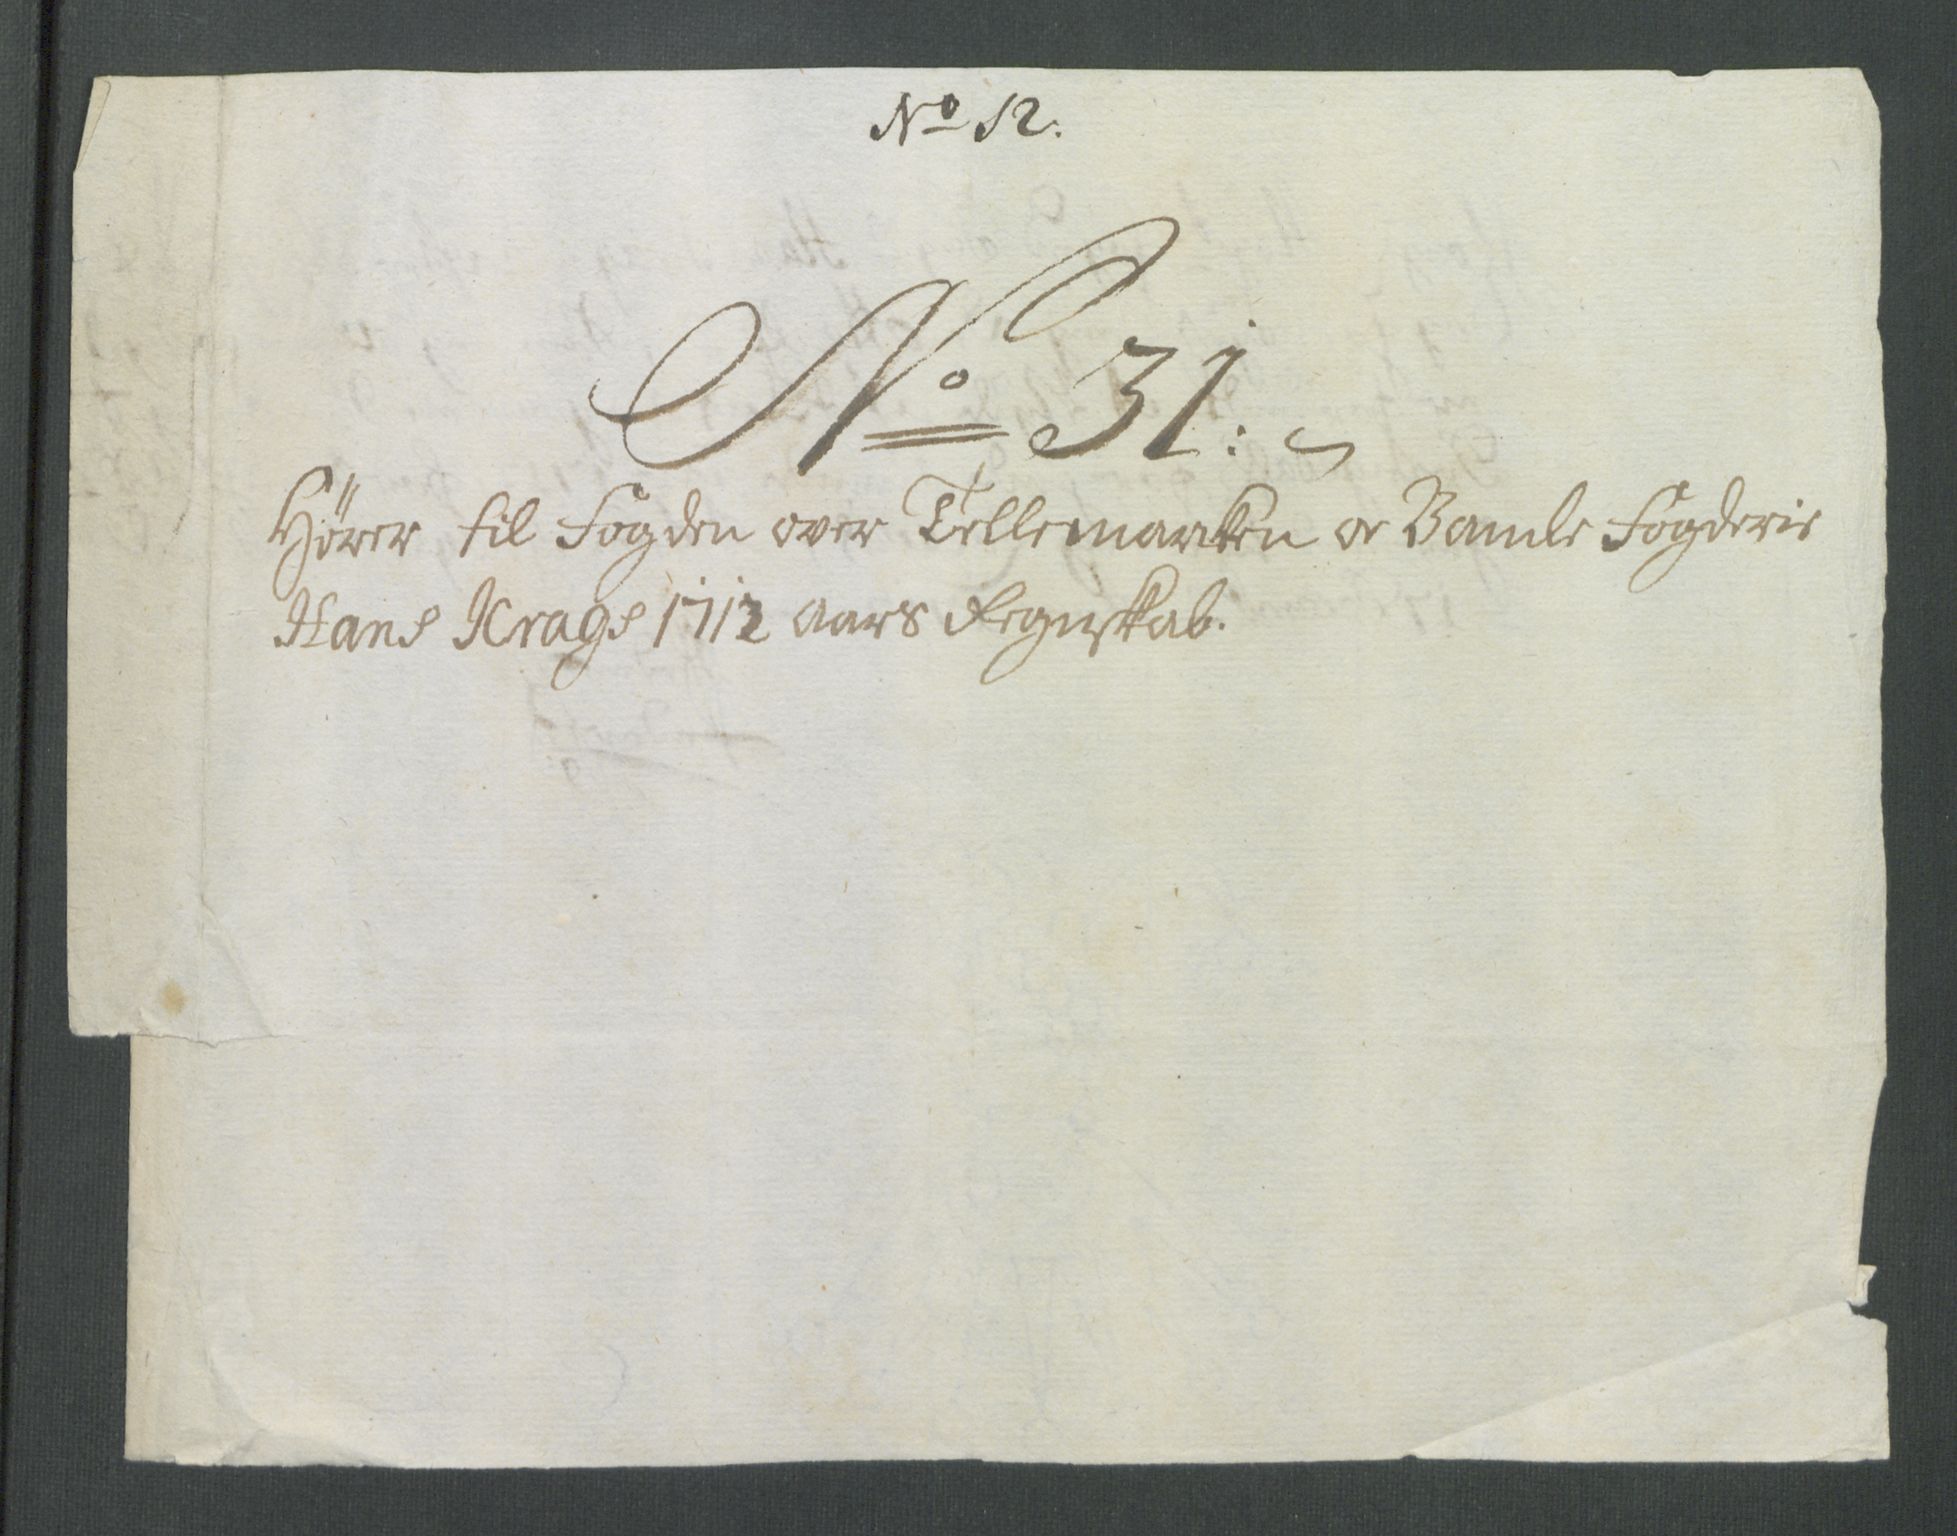 No 12.
No 31:
Hører til Fogden over Tellemarken oc Bamle Fogderie
Hans Krags 1712 aars Regnskab.